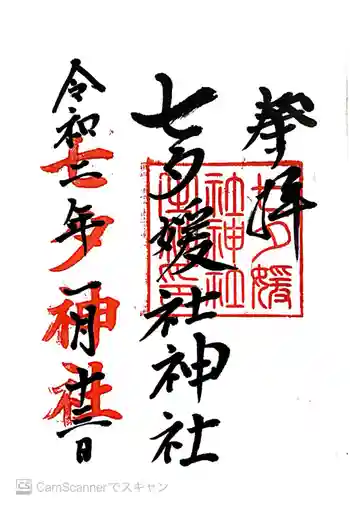 奉拝
七夕媛社神社
令和二年一月廿二日
七夕神社
CamScannerでスキャン